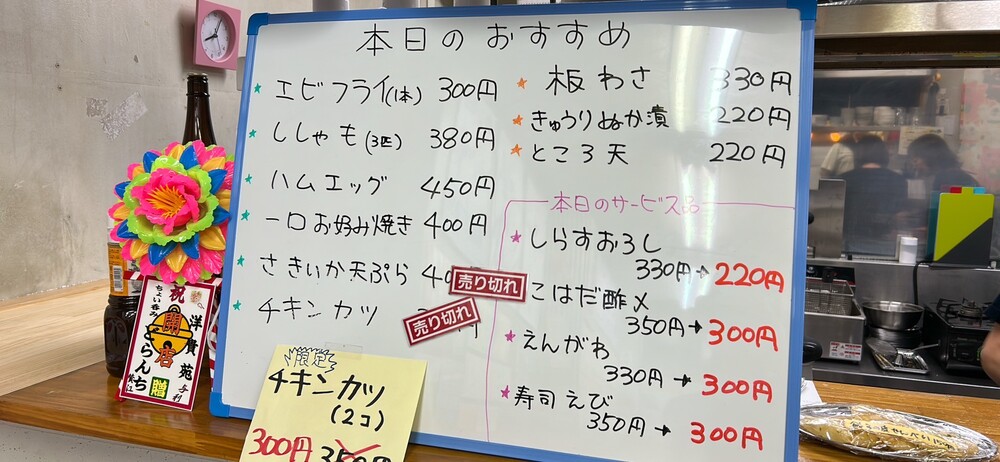 本日のおすすめ
エビフライ(1本) 300円
ししゃも(3匹) 380円
ハムエッグ 450円
一口お好み焼き 400円
さきいか天ぷら 40
売り切れ
チキンカツ
売り切れ
板わさ 330円
きゅうりぬか漬 220円
ところ天 220円
本日のサービス品
しらすおろし
330円→220円
こはだ酢〆
350円→300円
えんがわ
330円→300円
寿司えび
350円→300円
限定
チキンカツ
(2コ)
300円 350円
祝
開店
洋貴苑
贈